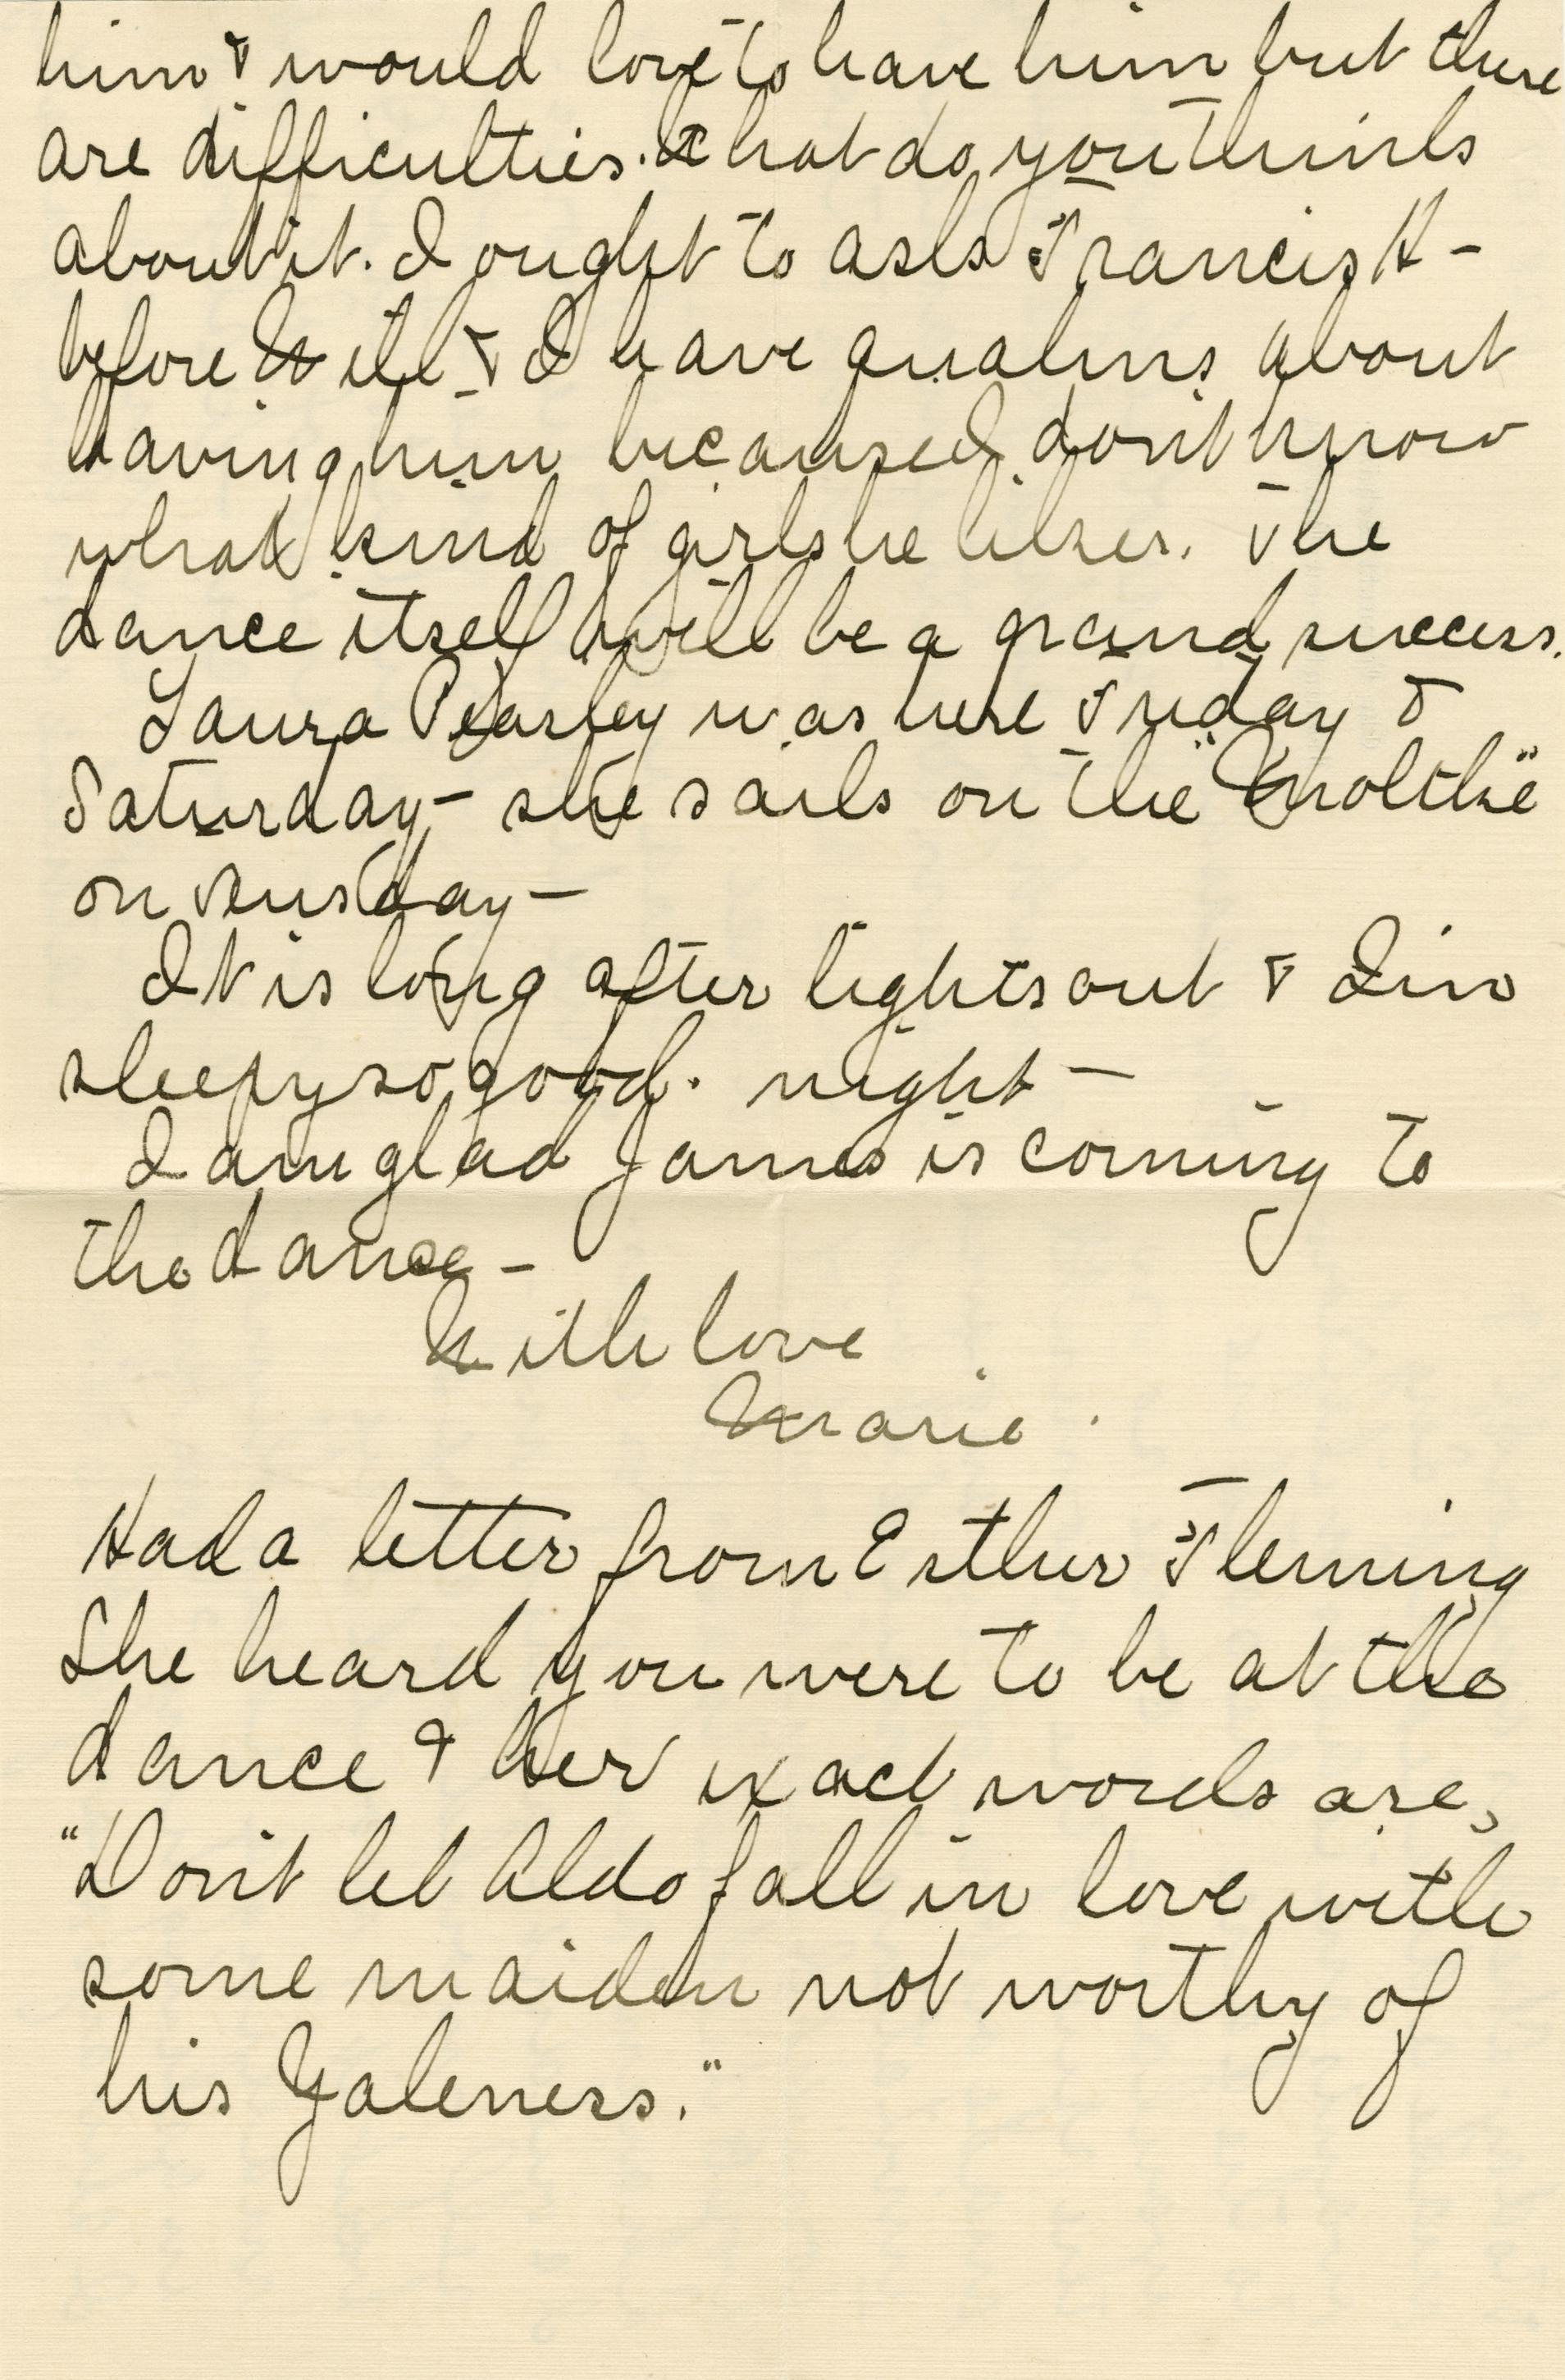 him & would love to have him but there
are difficulties. What do you think
about it. I ought to ask Francis H -
before Will & I have qualms about
having him because I don't know
what kind of girls he likes. The
dance itself will be a grand success.
Laura Pearley was here Friday &
Saturday - she sails on the "Moltke"
on Tuesday -
It is long after lights out & I'm
sleepy so good. night -
I am glad James is coming to
the dance -
With love
Marie.
Had a letter from Esther Fleming
She heard you were to be at the
dance & her exact words are,
"Don't let Aldo fall in love with
some maiden not worthy of
his Yaleness."